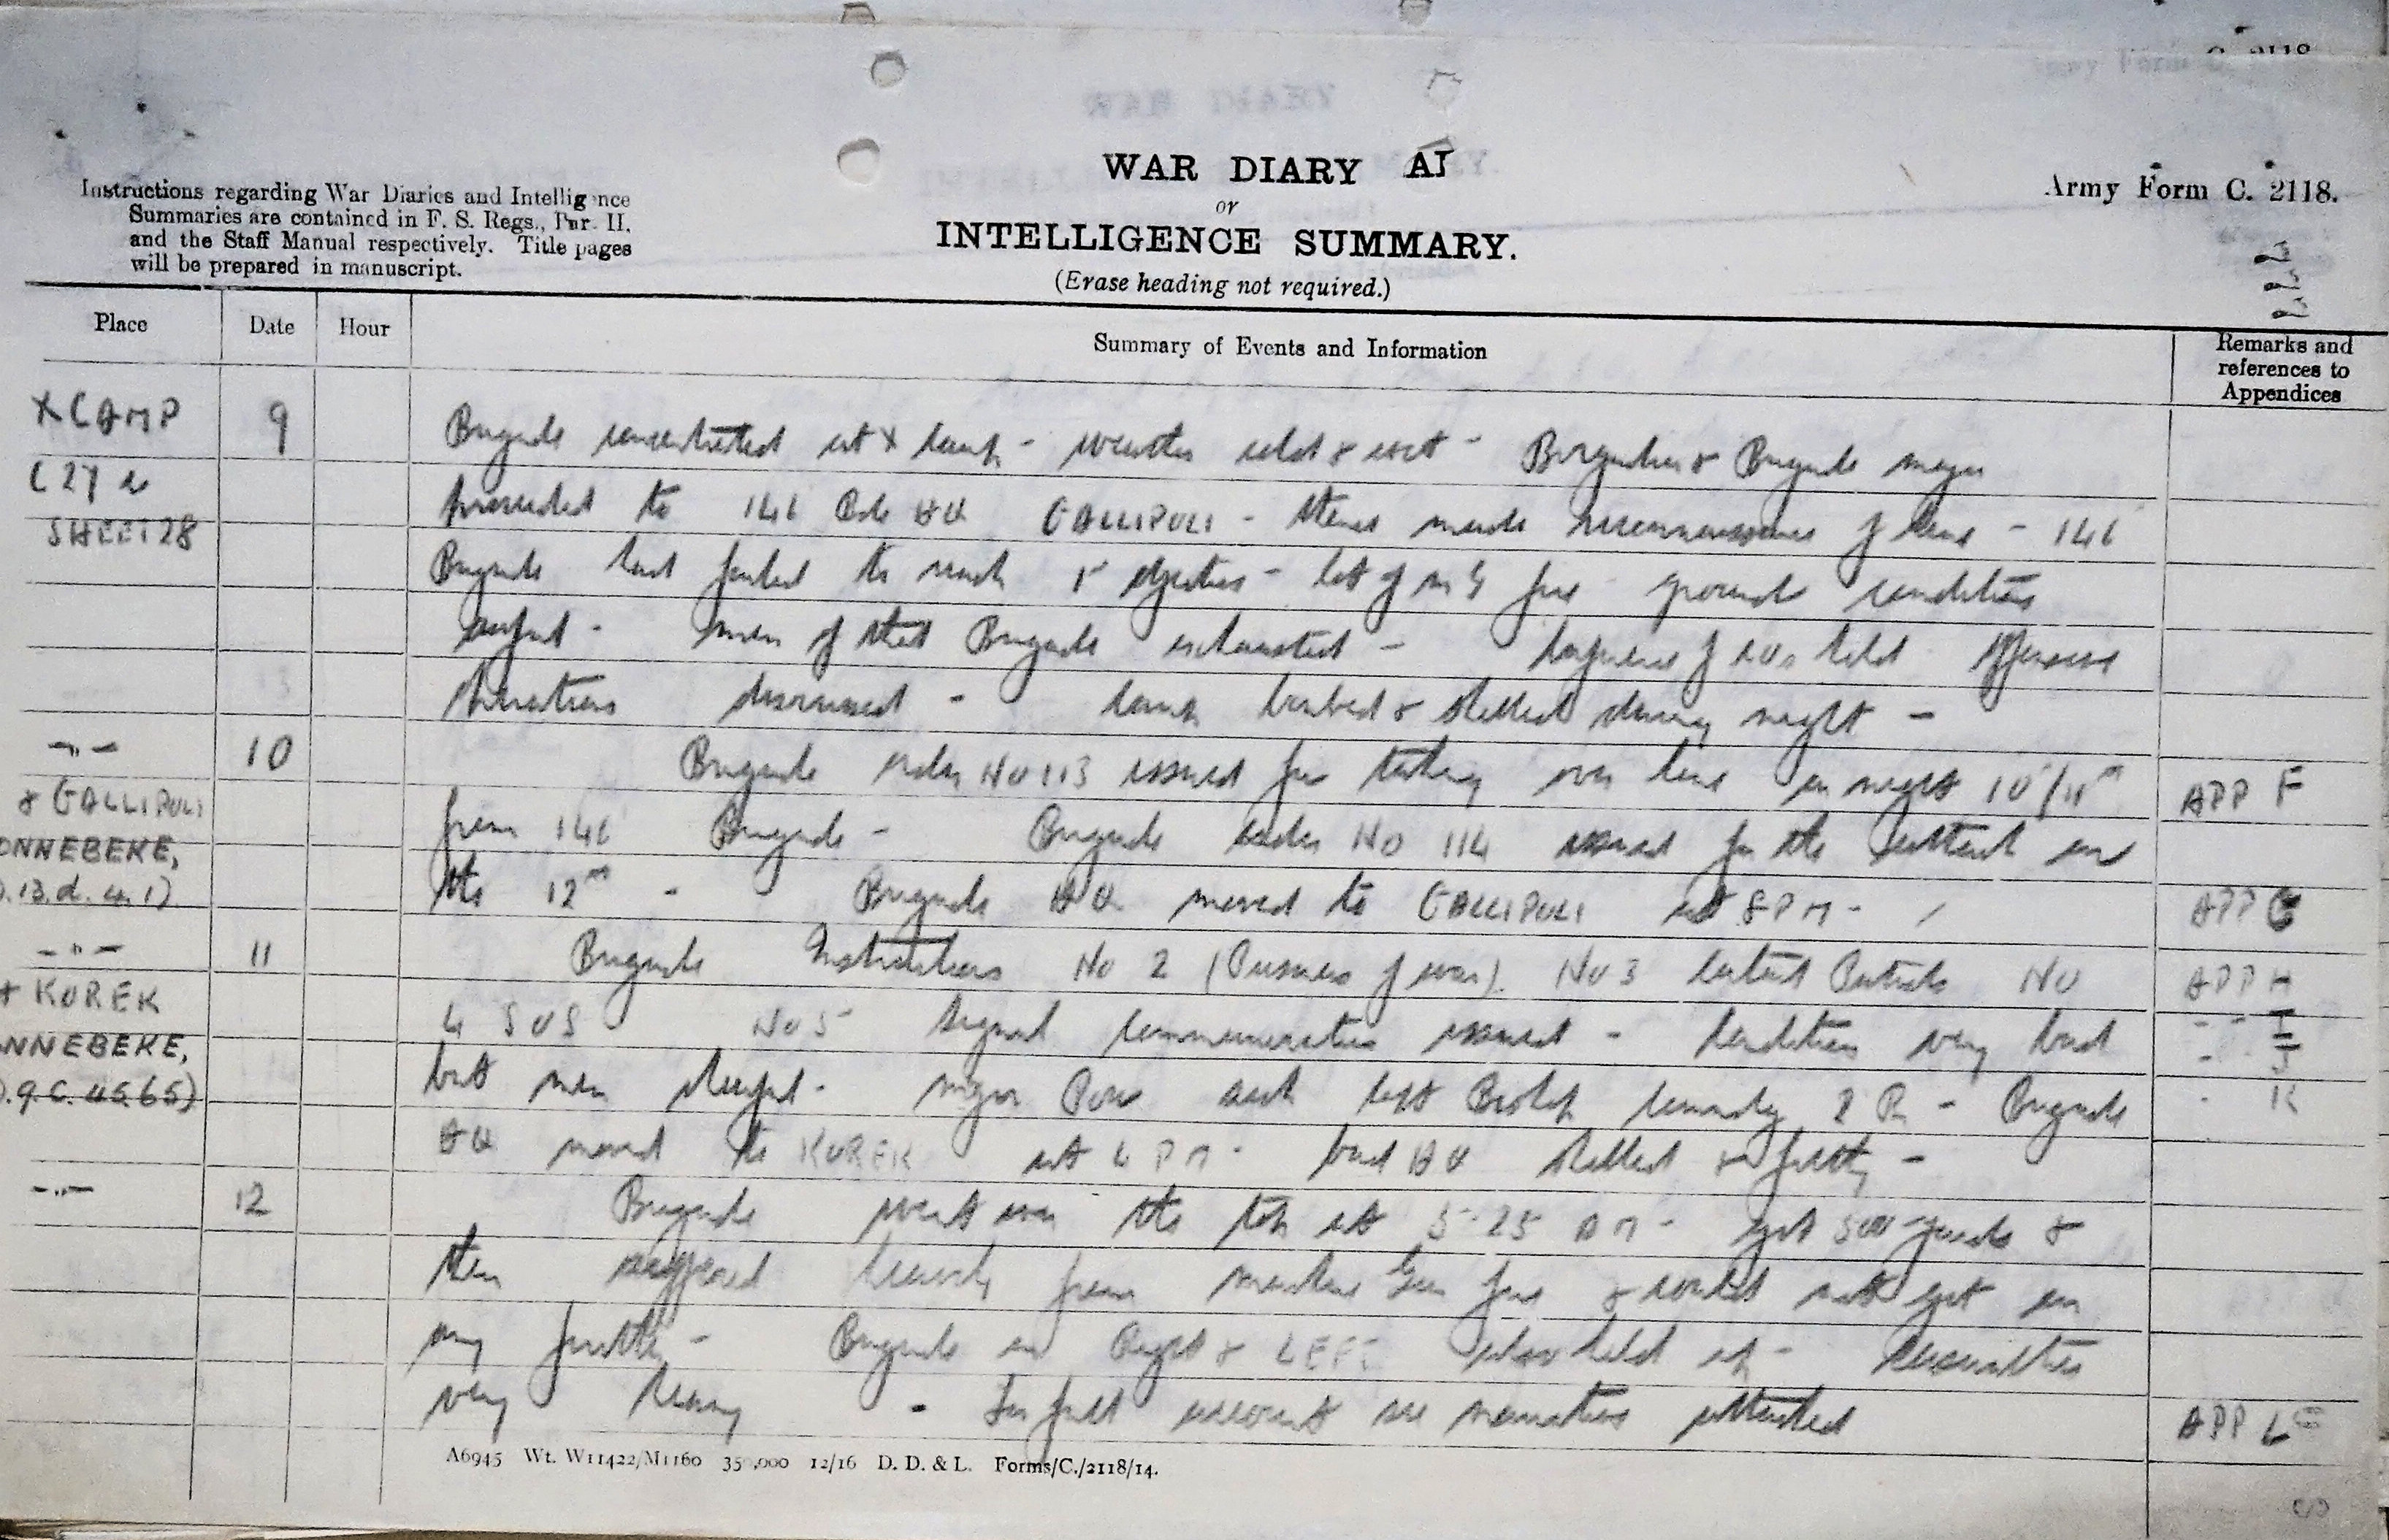 Army Form C. 2118.
Instructions regarding War Diaries and Intelligence
Summaries are contained in F. S. Regs., Par. II.
and the Staff Manual respectively. Title pages
will be prepared in manuscript.
WAR DIARY
or
INTELLIGENCE SUMMARY.
(Erase heading not required.)
Place Date Hour Summary of Events and Information Remarks and references to Appendices
X CAMP 9 Brigade concentrated at X Camp - weather cold & wet - Brigadier & Brigade Major
C 27 proceeded to 146 Bde HQ GALLIPOLI - thence made reconnaissance of line - 146
SHEET 28 Brigade had failed to reach 1st objective - lot of MG fire ground conditions
awful - men of that Brigade exhausted - Conference of COs held
situation discussed - Camp bombed & shelled during night -
-"- 10 Brigade order No 113 issued for taking over line on night 10/11th APP F
& GALLIPOLI from 146 Brigade - Brigade order No 114 issued for the attack on
ONNEBEKE, the 12th - Brigade HQ moved to GALLIPOLI at 8 PM - APP G
D.13.d.4.1)
-"- 11 Brigade Instructions No 2 (Prisoners of war). No 3 Contact Patrols No APP H
+ KOREK 4 SOS No 5 Signal Communication issued - Conditions very bad - - I
- J
NNEBEKE, but men cheerful - Major left Brigade - K
D.9.C.45.65) HQ moved to KOREK at 4 PM - bad HQ shelled & filthy -
-"- 12 Brigade went over the top at 5.25 AM - got 500 yards &
then suffered heavily from machine Gun fire & could not get on
any further - Brigade on Right & LEFT also held up - Casualties
very heavy - For full account see narrative attached APP L
A6945 Wt. W11422/M1160 35 ,000 12/16 D. D. & L. Forms/C./2118/14.